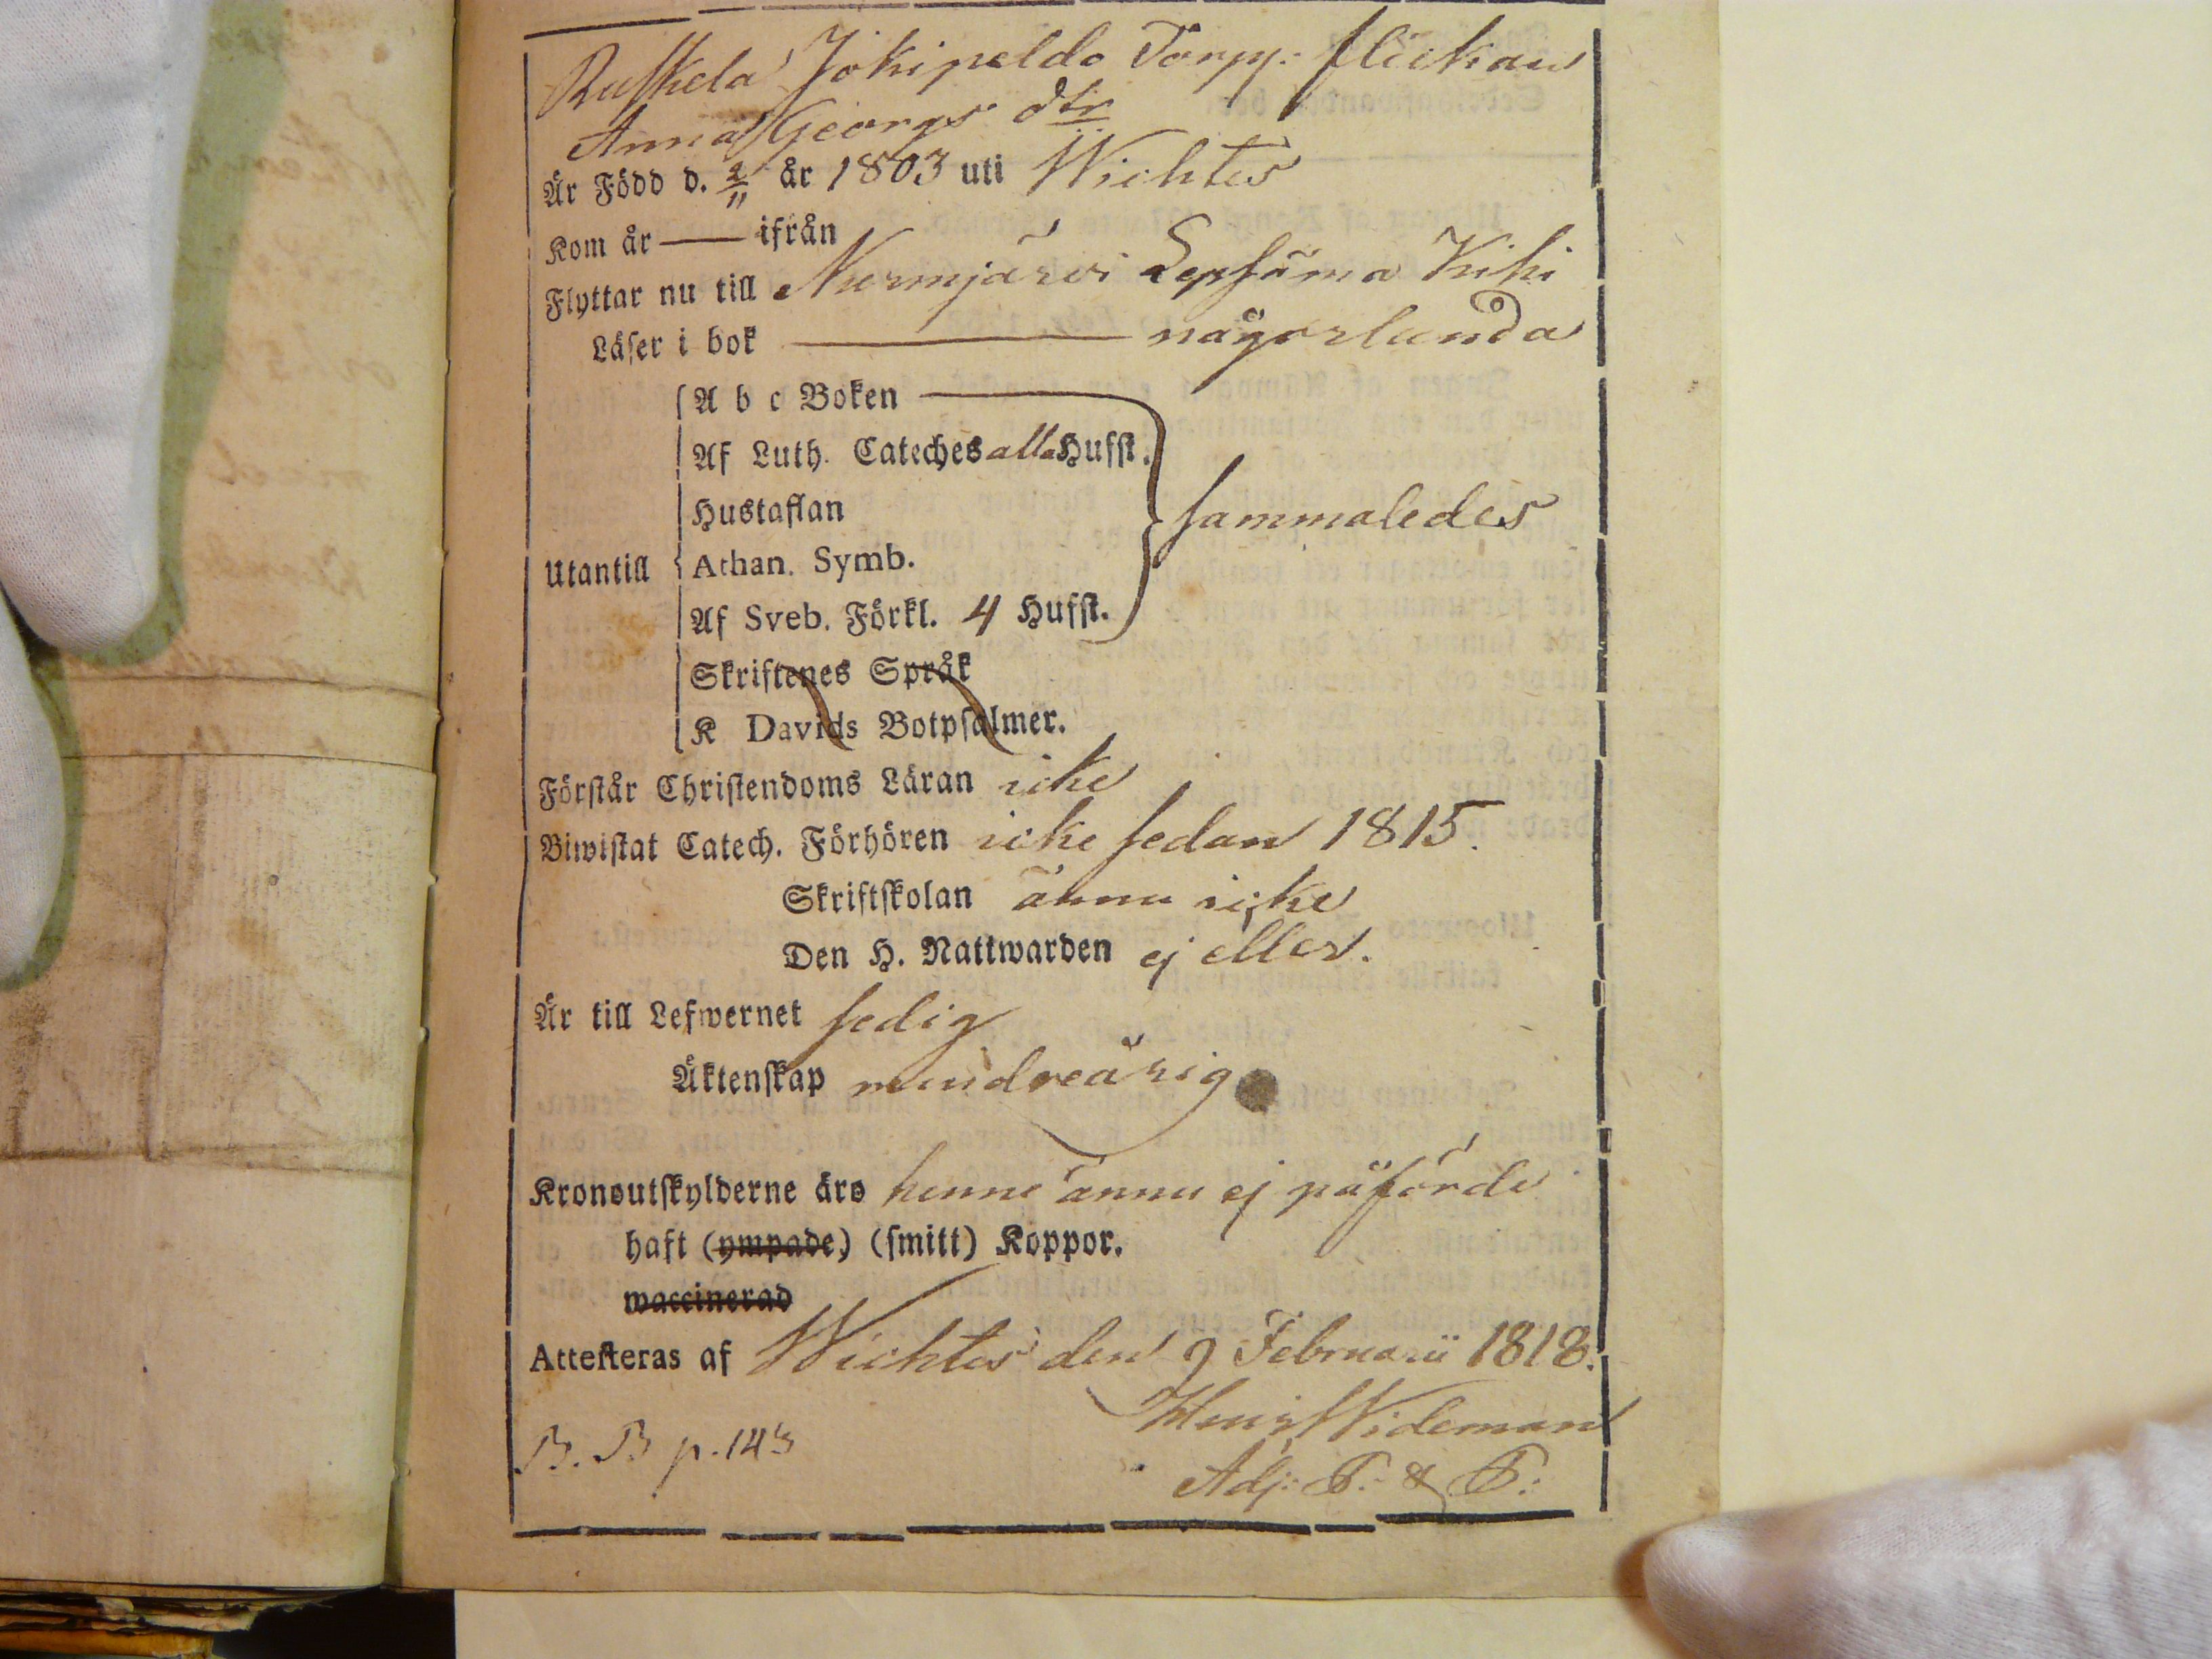 Ruskela Jokipeldo Torp: flickan
Anna Georgs dtr
Är Född d. 2/11 år 1803 uti Wichtis
Kom år — ifrån
Flyttar nu till Nurmjärvi Lepsäma Kihi
Läser i bok — någorlunda
A b c Boken
Af Luth. Cateches alla Hufst.
Hustaflan
sammaledes
Utantill Athan. Symb.
Af Sveb. Förkl. 4 Hufst.
Skriftenes Språk
K Davids Botpsalmer.
Förstår Christendoms Läran icke
Biwistat Catech. Förhören icke sedan 1815.
Skriftskolan ännu icke
Den H. Nattwarden ej eller.
Är till Lefwernet sedig
Äktenskap mindreårig
Kronoutskylderne äro henne ännu ej påförde
haft (ympade) (smitt) Koppor.
waccinerad
Attesteras af Wichtis den 9 Februarii 1818.
Henr Wideman
B. B p. 143
Adj: P. & P: